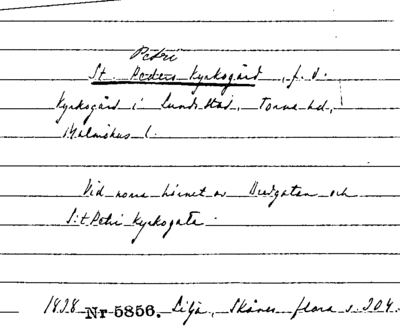 Petri
St. Peders Kyrkogård, f. d.
Kyrkogård i Lunds stad, Torna hd,
Malmöhus l.
Vid norra hörnet av Bredgatan och
S:t Petri Kyrkogata.
1838 Nr 5856. Lilja, Skånes flora s. 204.